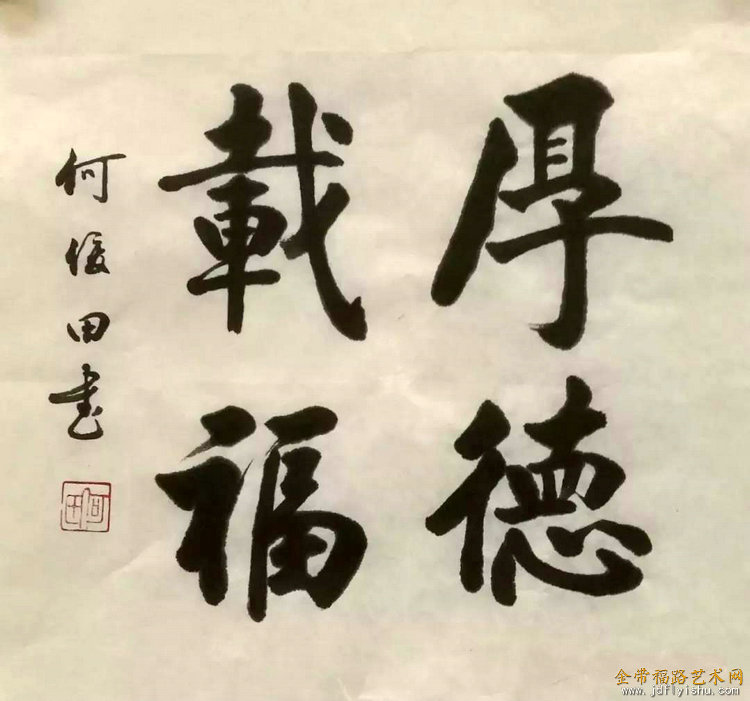 厚德
載福
何俊田書
金带福路艺术网
www.jdflyishu.com